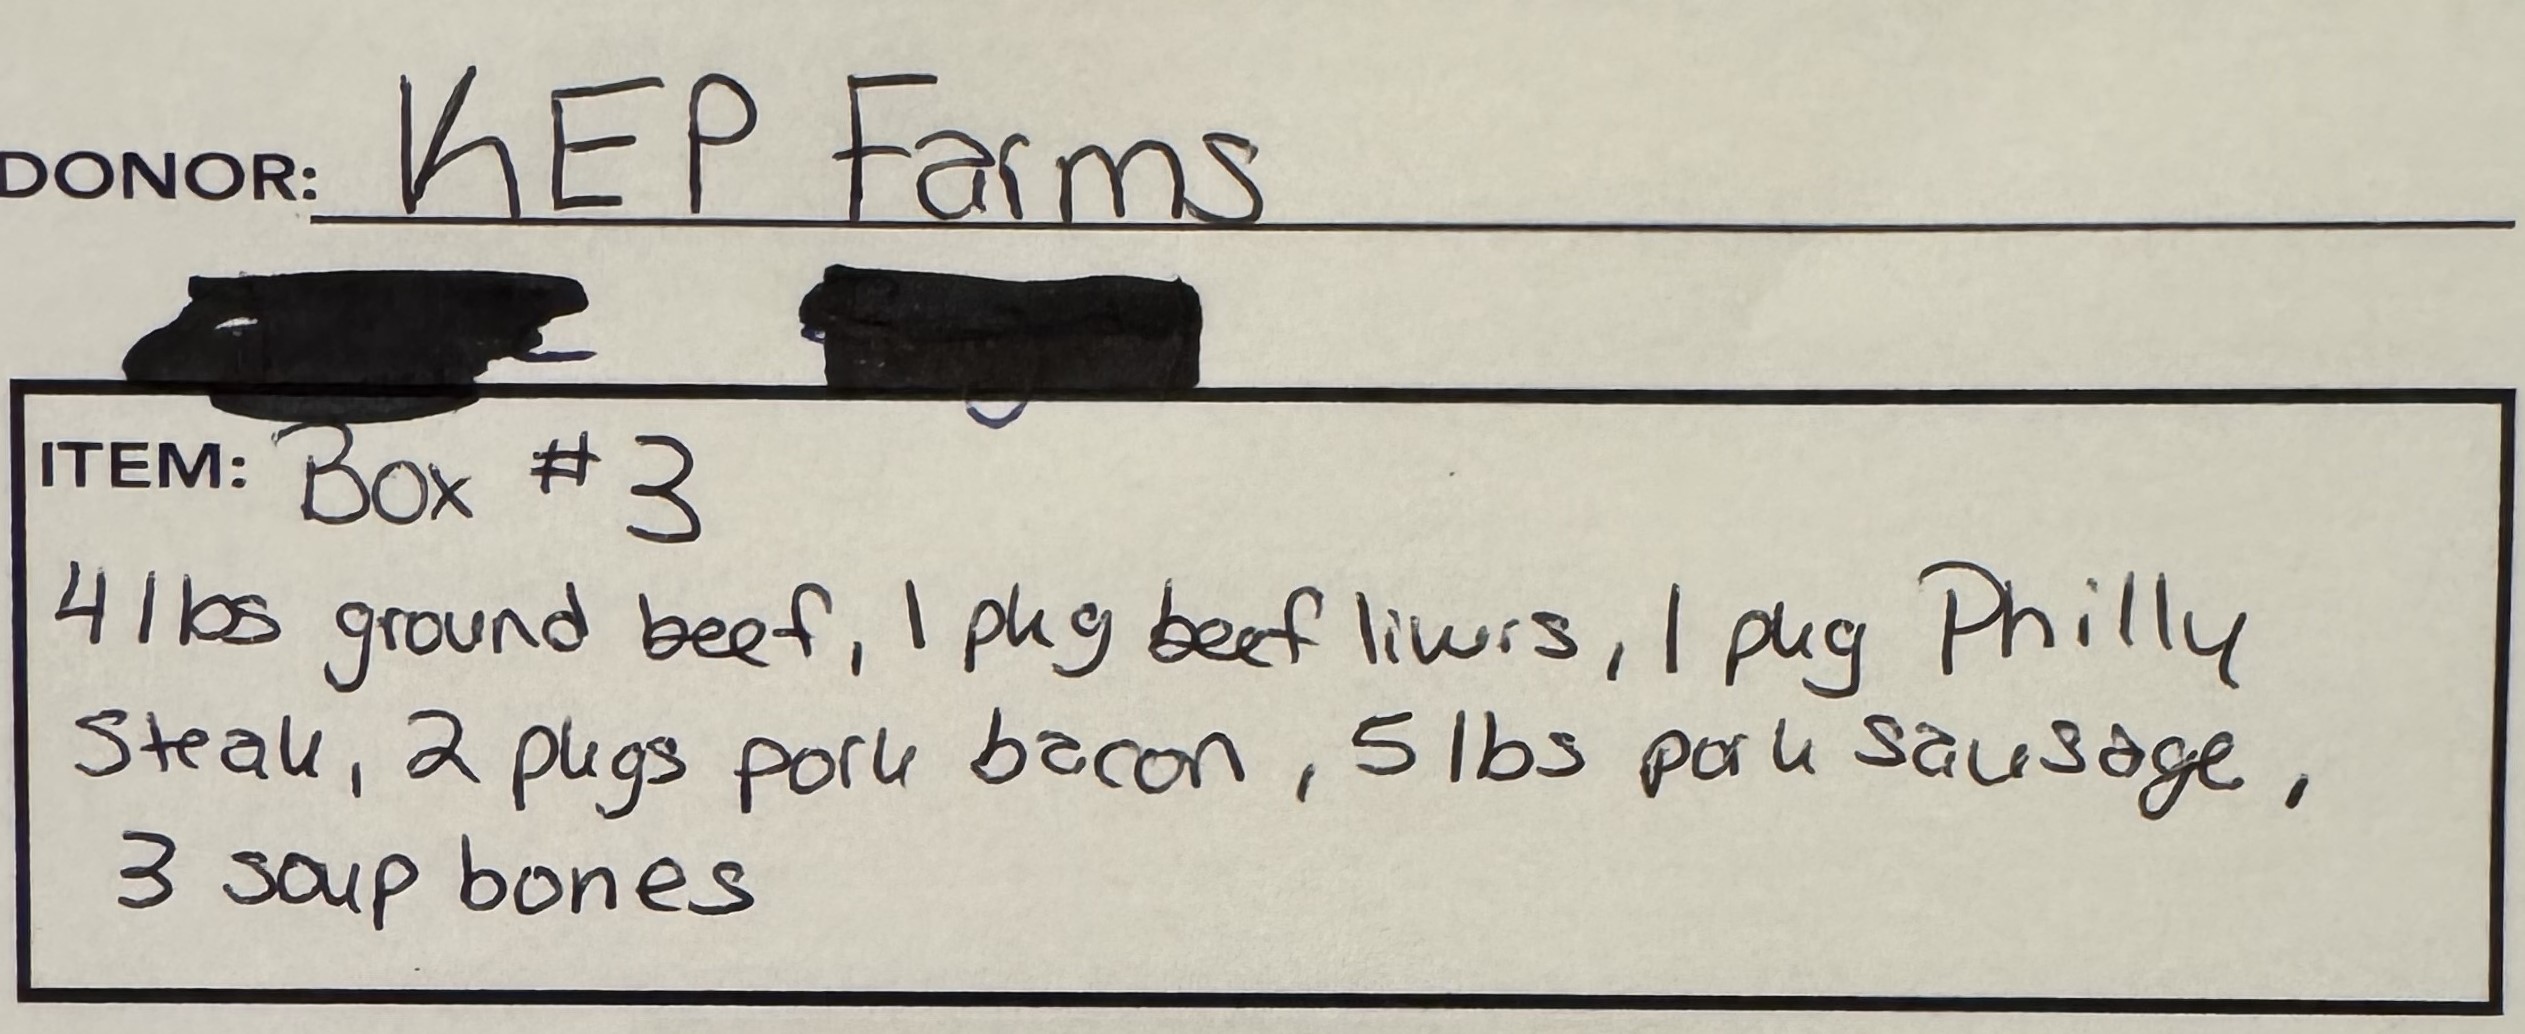 DONOR: KEP Farms
ITEM: Box #3
4 lbs ground beef, 1 pkg beef livers, 1 pkg Philly
Steak, 2 pkgs pork bacon, 5 lbs pork sausage,
3 soup bones